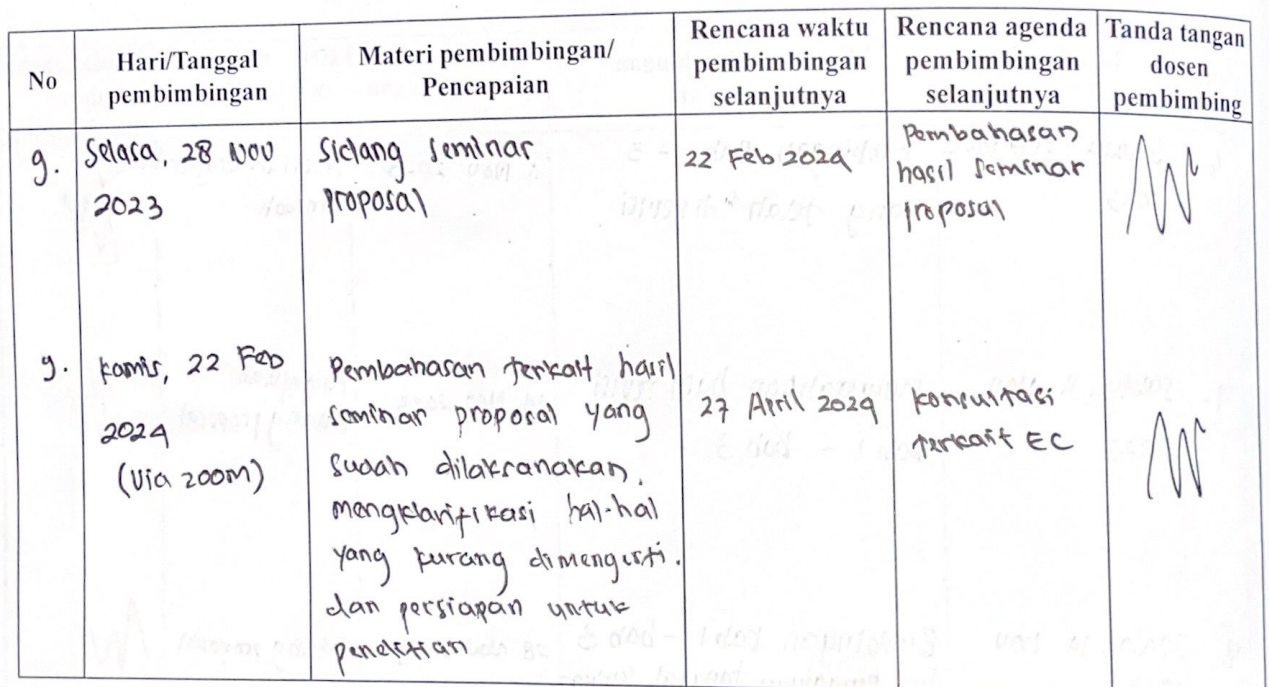 No
Hari/Tanggal
pembimbingan
Materi pembimbingan/
Pencapaian
Rencana waktu
pembimbingan
selanjutnya
Rencana agenda
pembimbingan
selanjutnya
Tanda tangan
dosen
pembimbing
g.
Selasa, 28 Nov
2023
Sidang seminar
proposal
22 Feb 2024
Pembahasan
hasil seminar
proposal
9.
Kamis, 22 Feb
2024
(Via zoom)
Pembahasan terkait hasil
seminar proposal yang
sudah dilaksanakan,
mengklarifikasi hal-hal
yang kurang dimengerti.
dan persiapan untuk
penelitian
27 April 2024
konsultasi
terkait EC